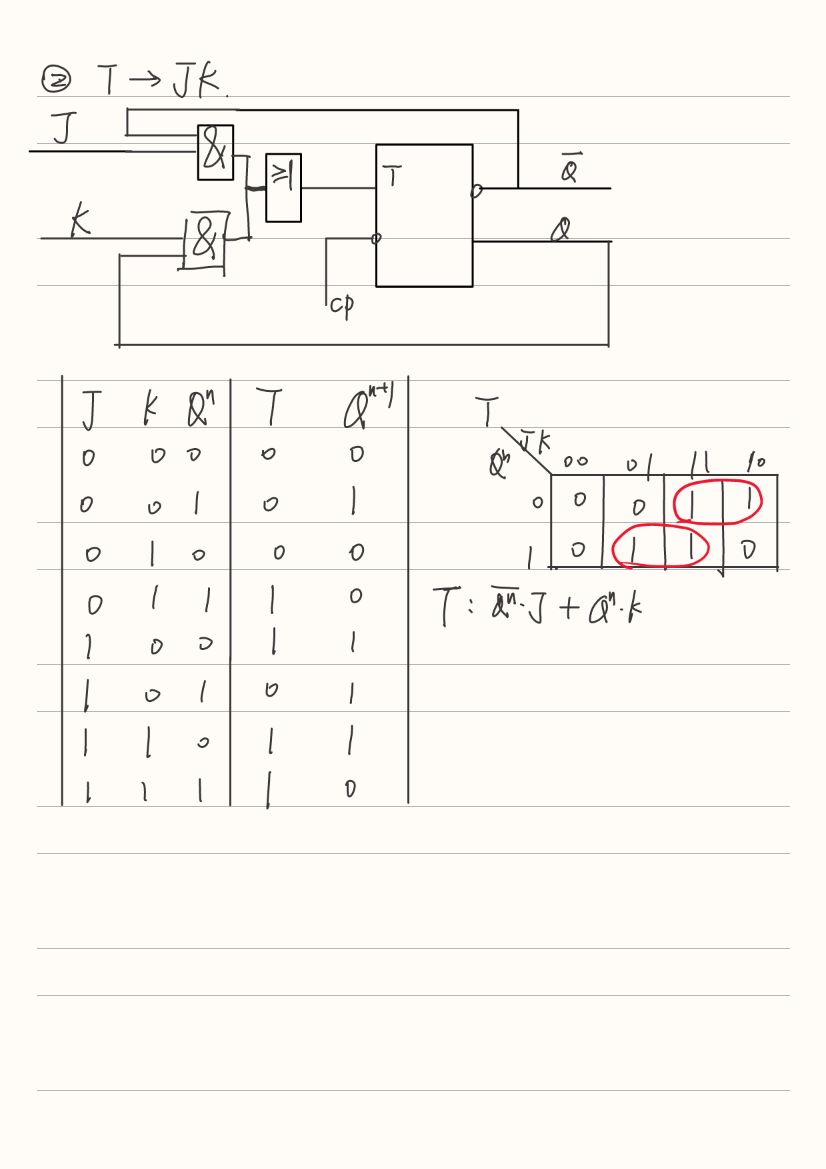 ② T → JK.
J
&
≥1
T
Q̅
K
&
Q
CP
J K Qⁿ T Qⁿ⁺¹
0 0 0 0 0
0 0 1 0 1
0 1 0 0 0
0 1 1 1 0
1 0 0 1 1
1 0 1 0 1
1 1 0 1 1
1 1 1 1 0
T
JK
Qⁿ 00 01 11 10
0 0 0 1 1
1 0 1 1 0
T: Q̅ⁿ·J + Qⁿ·K